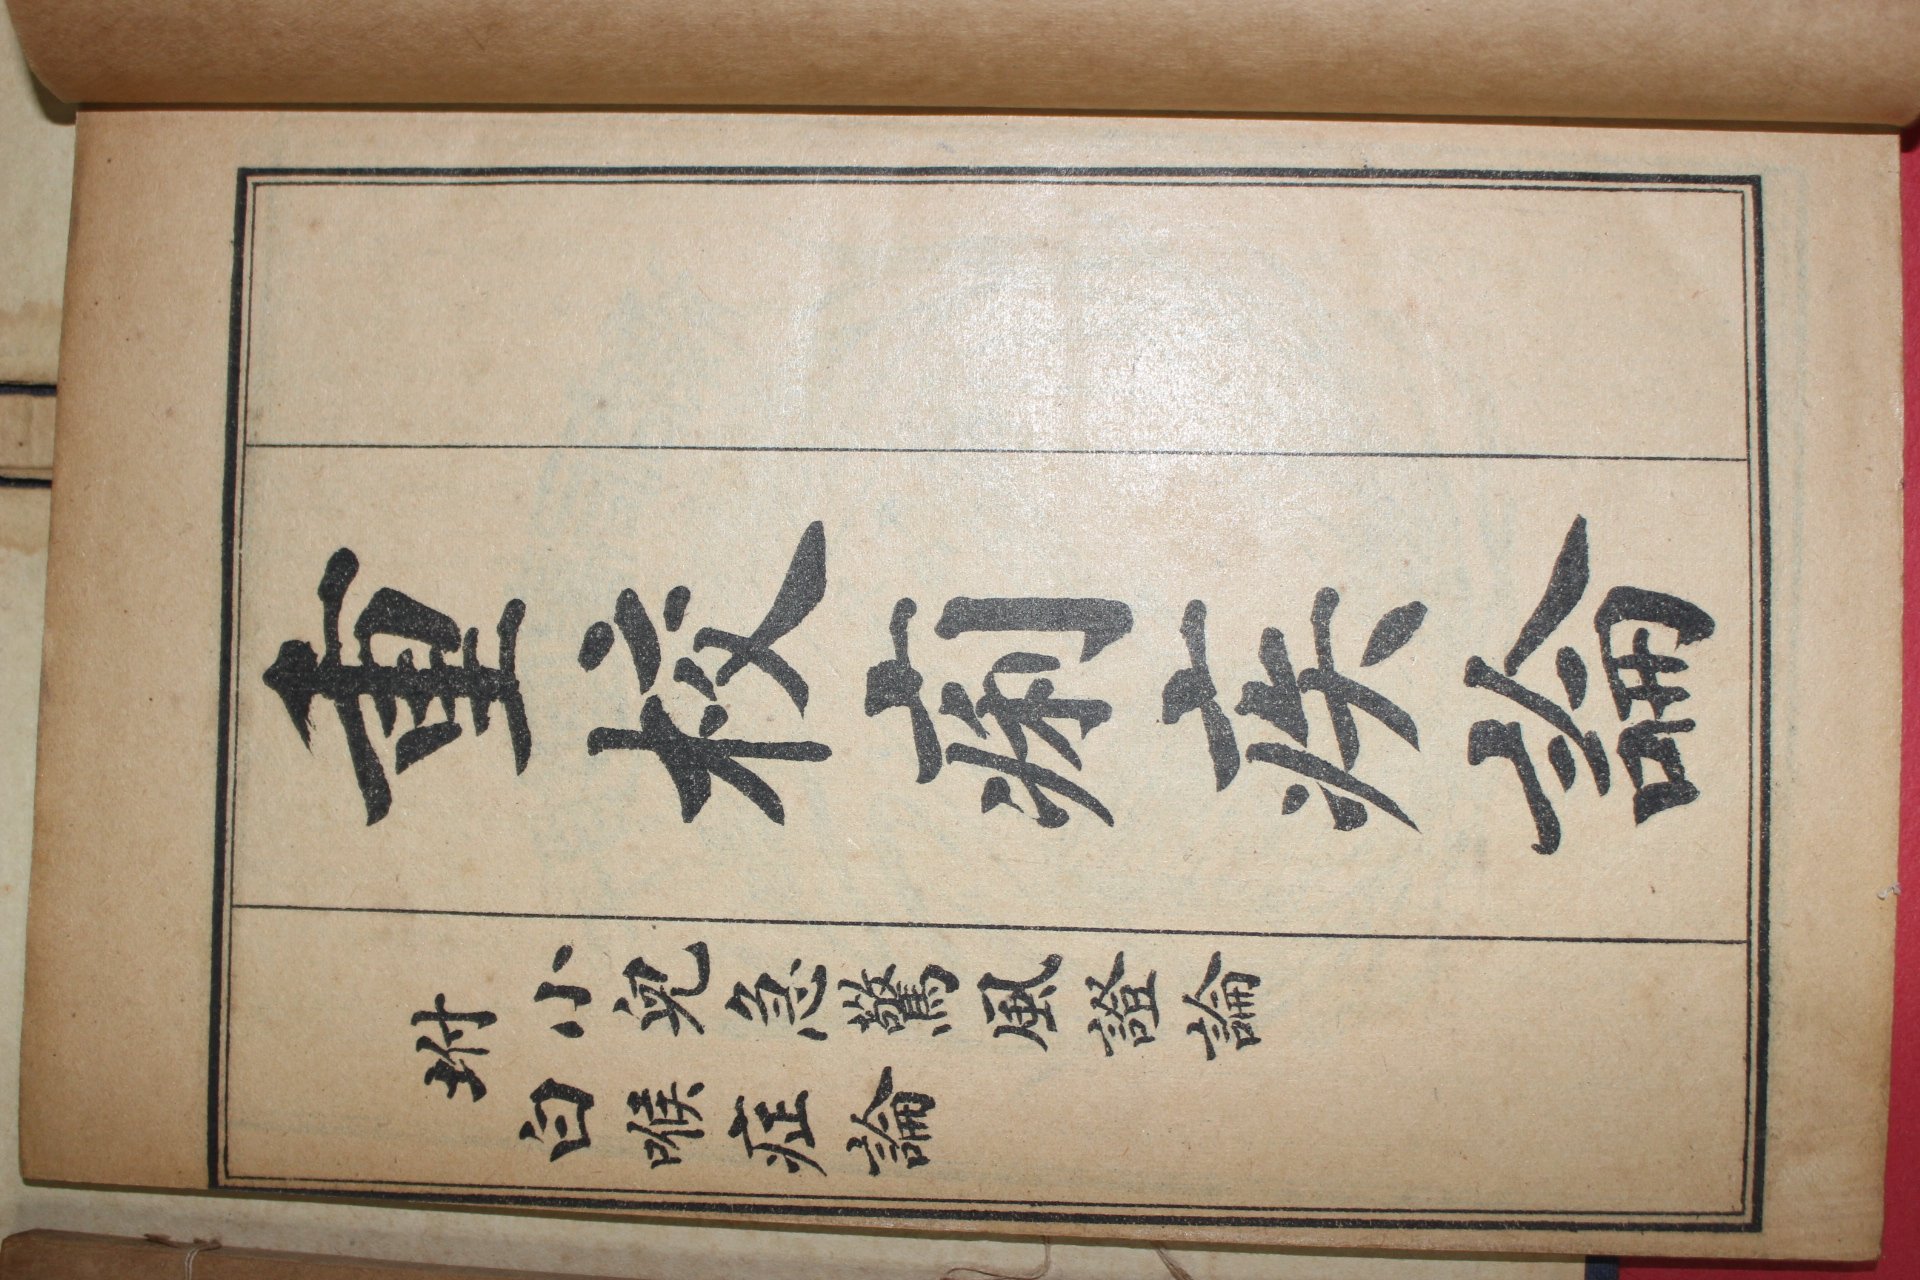 重校痢疾論
坿
小兒急驚風證論
白喉症論